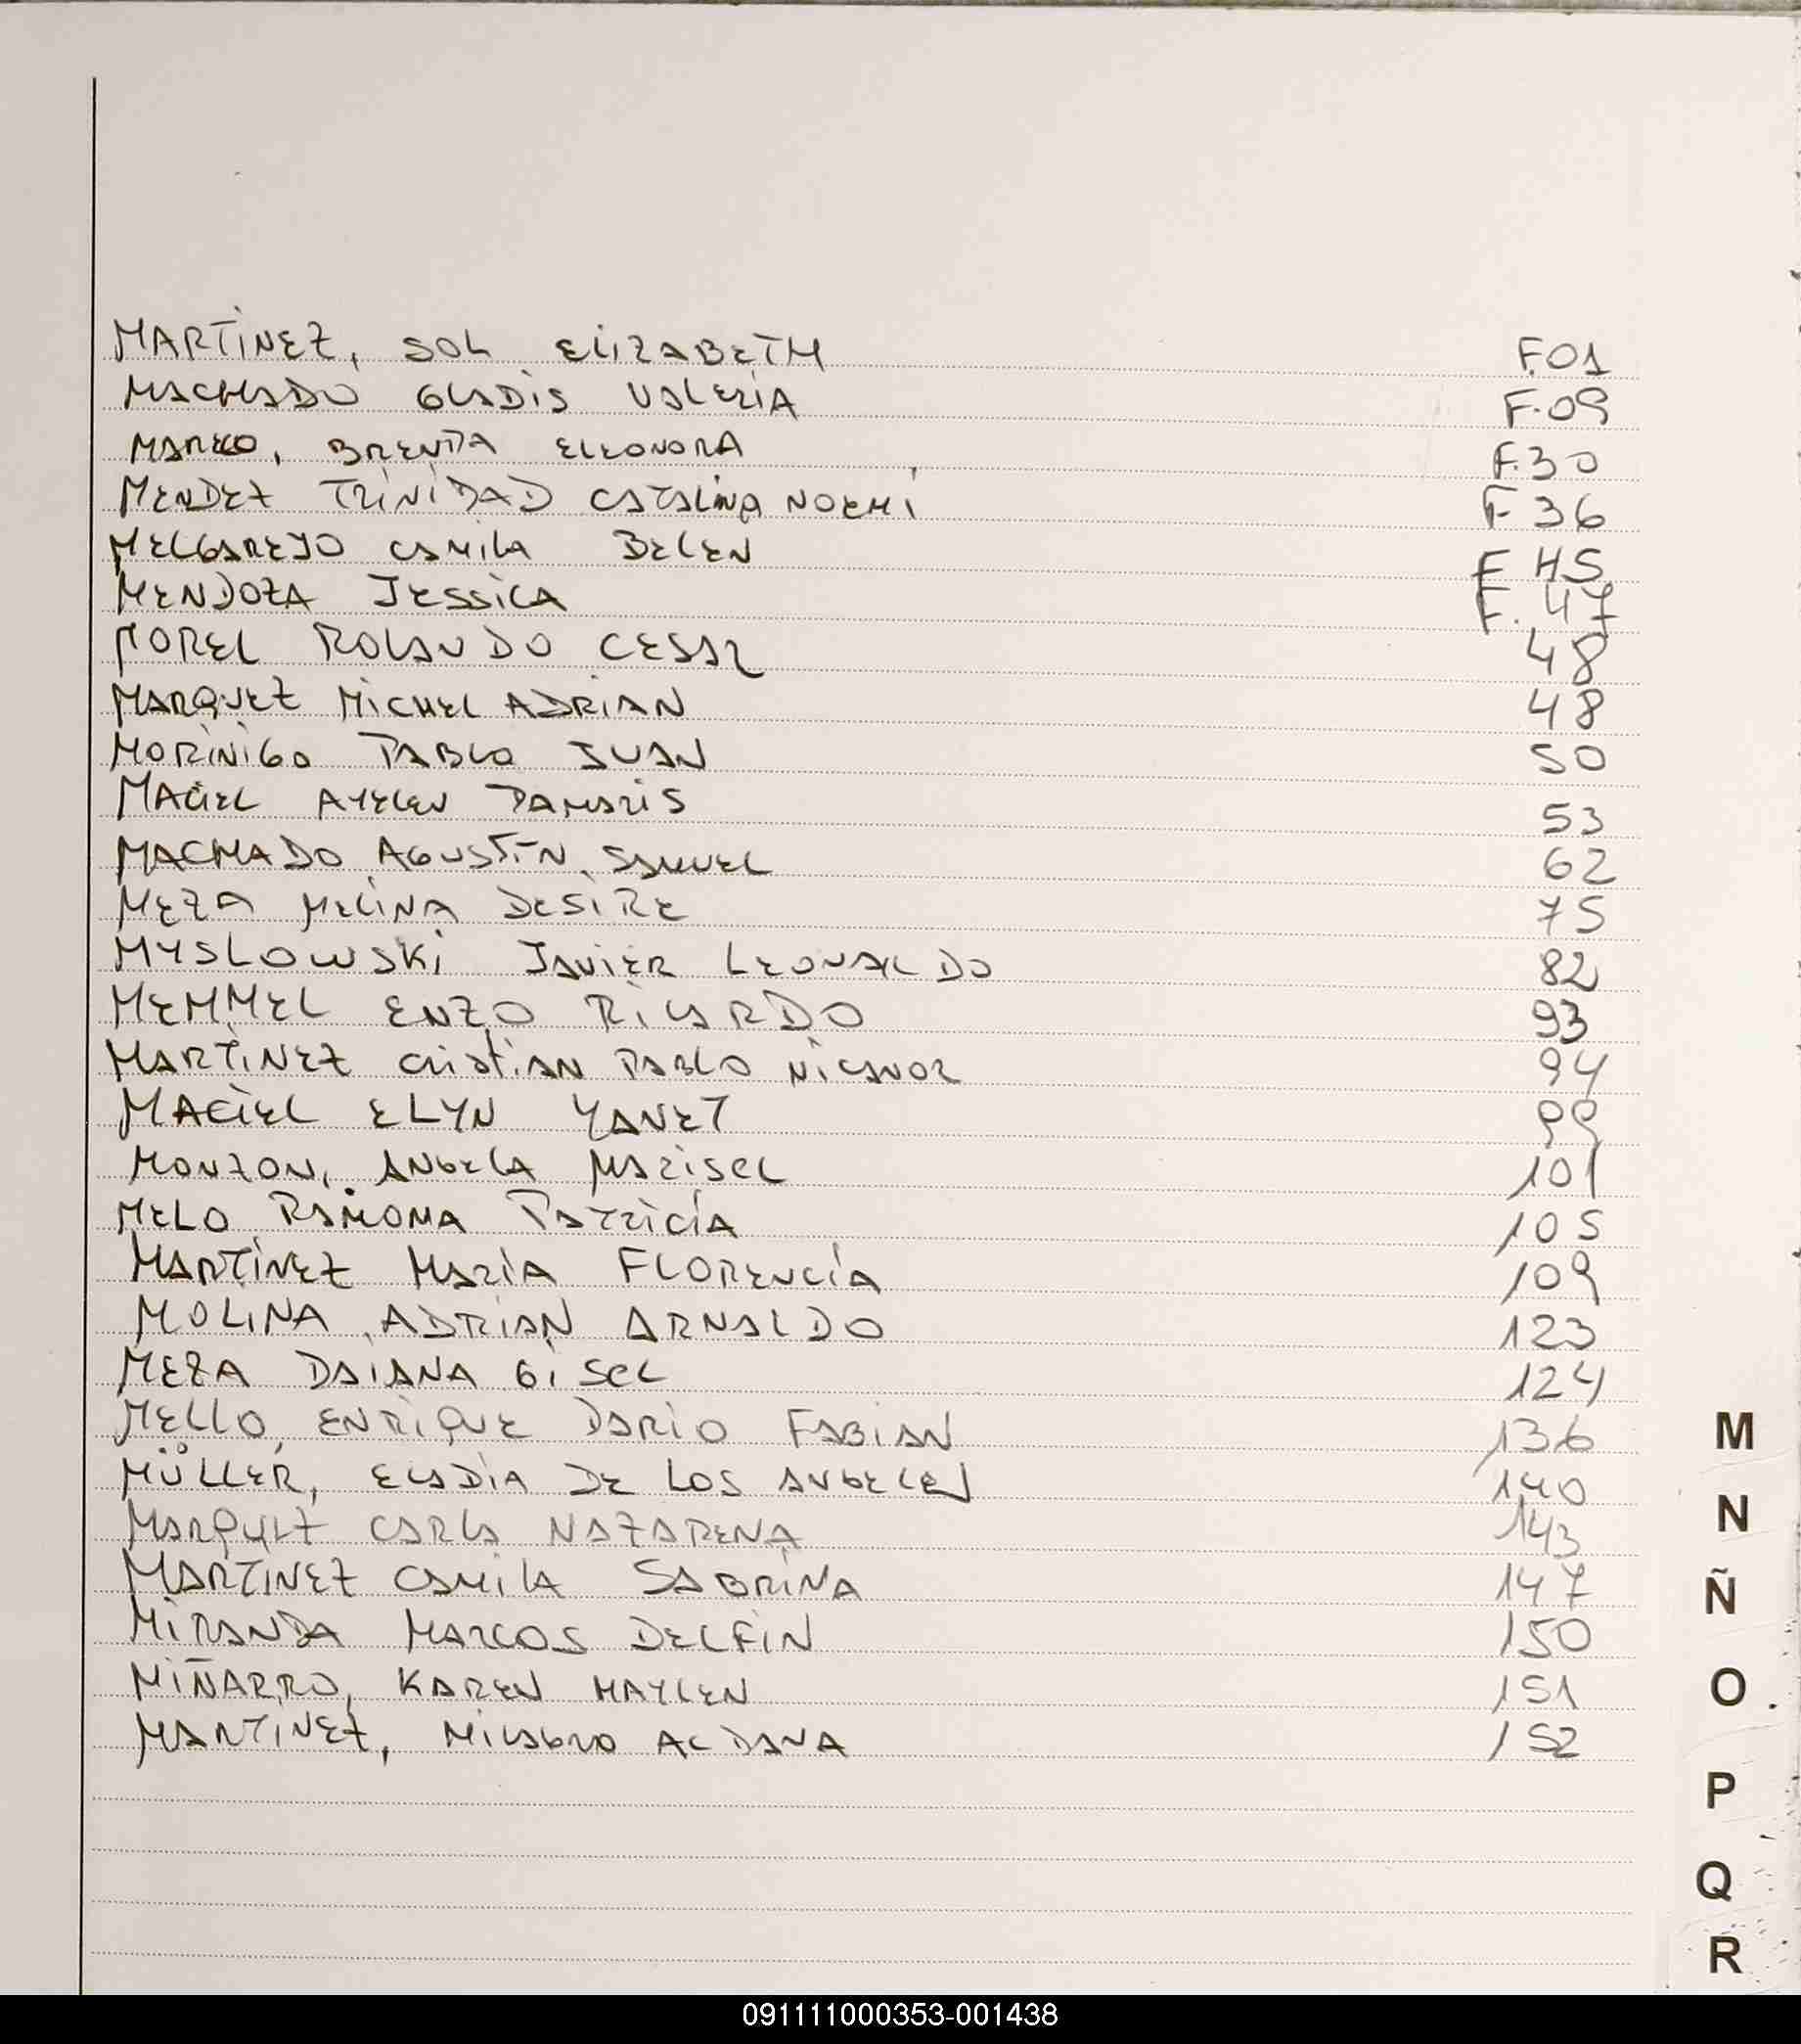 MARTINEZ, SOL ELIZABETH F.01
MACHADO GLADIS VALERIA F.09
MARKO, BRENDA ELEONORA F.30
MENDEZ TRINIDAD CATALINA NOEMÍ F 36
MELGAREJO CAMILA BELEN F 45
MENDOZA JESSICA F. 47
MOREL ROLANDO CESAR 48
MARQUEZ MICHEL ADRIAN 48
MORINIGO PABLO JUAN 50
MACIEL AYELEN DAMARIS 53
MACHADO AGUSTIN SAMUEL 62
MEZA MELINA DESIRE 75
MYSLOWSKI JAVIER LEONALDO 82
MEMMEL ENZO RICARDO 93
MARTINEZ CRISTIAN PABLO NICANOR 94
MACIEL ELYN YANET 99
MONZON, ANGELA MARISEL 101
MELO RAMONA PATRICIA 105
MARTÍNEZ MARÍA FLORENCIA 109
MOLINA ADRIAN ARNALDO 123
MEZA DAIANA GISEL 124
MELLO, ENRIQUE DARIO FABIAN 136
MÜLLER, ELADIA DE LOS ANGELES 140
MARQUEZ CARLA NAZARENA 143
MARTINEZ CAMILA SABRINA 147
MIRANDA MARCOS DELFIN 150
MIÑARRO, KAREN MAYLEN 151
MARTINEZ, MILAGRO ALDANA 152
M
N
Ñ
O
P
Q
R
091111000353-001438